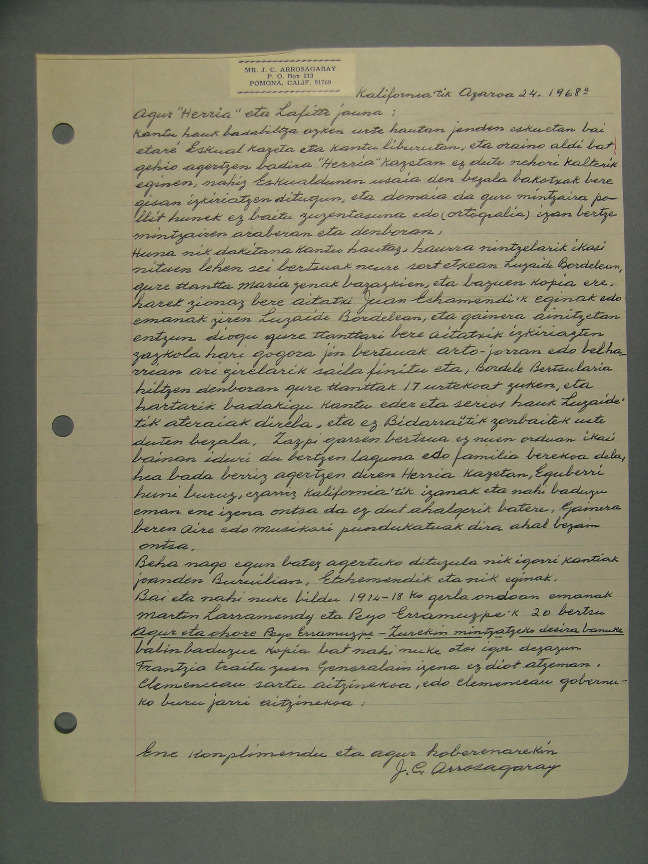 MR. J. C. ARROSAGARAY
P. O. Box 213
POMONA, CALIF. 91769
Kalifornia'tik Azaroa 24. 1968ª
Agur "Herria" eta Lafitte jauna:
Kantu hauk badabiltza azken urte hautan jenden eskuetan bai
etaré Eskual Kazeta eta Kantu liburutan, eta oraino aldi bat
gehio agertzen badira "Herria" Kazetan ez dute nehori kalterik
eginen, nahiz Eskualdunen usaia den bezala bakotxak bere
gisan izkiriatzen ditugun, eta domaia da gure mintzaira po-
llit hunek ez baitu zuzentasuna edo (ortografia) izan bertze
mintzairen araberan eta denboran,
Huna nik dakitana Kantu hautaz, haurra nintzelarik ikasi
nituen lehen sei bertsuak neure sort etxean Luzaide Bordelean,
gure ttantta Maria zenak bazazkien, eta bazuen kopia ere.
harek zionaz bere aitatxi Juan Echamendi'k eginak edo
emanak ziren Luzaide Bordelean, eta gainera ainitzetan
entzun diogu gure ttanttari bere aitatxik izkiriazten
zazkola hari gogora jin bertsuak arto-jorran edo belha-
rrean ari zirelarik saila finitu eta, Bordele Bertsularia
hiltzen denboran gure ttanttak 17 urtekoat zuken, eta
hartarik badakigu Kantu eder eta serios hauk Luzaide'
tik ateraiak direla, eta ez Bidarraitik zonbaitek uste
duten bezala. Zazpi garren bertsua ez nuen orduan ikasi
bainan iduri du bertzen laguna edo familia berekoa dela,
hea bada berriz agertzen diren Herria Kazetan, Eguberri
huni buruz, ezarriz Kalifornia'tik izanak eta nahi baduzu
eman ene izena ontsa da ez dut ahalgerik batere. Gainera
beren Aire edo Musikari pundukatuak dira ahal bezam
ontsa.
Beha nago egun batez agertuko dituzula nik igorri kantiak
joanden Buruilian, Etchemendik eta nik eginak.
Bai eta nahi nuke bildu 1914-18 ko gerla ondoan emanak
Martin Larramendy eta Peyo Erramuzpe'k 20 bertsu
Agur eta ohore Peyo Erramuzpe - Zurekin mintzatzeko desira banuke
balin baduzue kopia bat nahi nuke otoi igor dezazun
Frantzia traitu zuen Generalain izena ez diot atzeman.
Clemenceau sartu aitzinekoa, edo Clemenceau gobernu-
ko buru jarri aitzinekoa:
Ene Konplimendu eta agur hoberenarekin
J. C. Arrosagaray